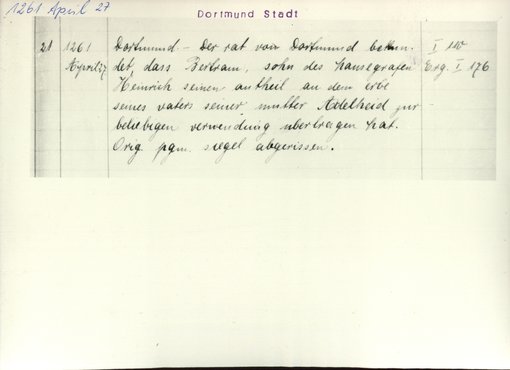 1261 April 27
Dortmund Stadt
21 1261 Dortmund. - Der rat von Dortmund bekun- I 110
April 27 det, dass Bertram, sohn des hansegrafen Erg. I 176
Heinrich seinen antheil an dem erbe
seines vaters seiner mutter Adelheid zur
beliebigen verwendung übertragen hat.
Orig. pgm. siegel abgerissen.